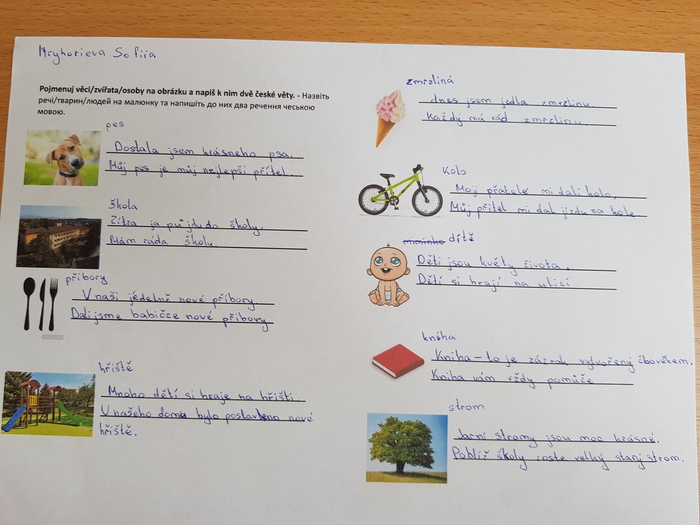 Hryhorieva Sofiia
Pojmenuj věci/zvířata/osoby na obrázku a napiš k nim dvě české věty. - Назвіть
речі/тварин/людей на малюнку та напишіть до них два речення чеською
мовою.
pes
Dostala jsem krásneho psa.
Můj pes je můj nejlepší přítel.
škola
Zítra ja půjdu do školy.
Mám ráda školu.
příbory
V naší jédelně nové příbory
Dali jsme babičce nové příbory
hřiště
Mnoho dětí si hraje na hřišti.
U našeho domu bylo postavleno nové
hřiště.
zmrzliná
dnes jsem jedla zmrzlinu.
Každý má rád zmrzlinu.
Kolo
Moj přatelé mi dali kolo.
Můj přítel mi dal jízdu na kole
mminko dítě
Děti jsou květy života.
Děti si hrají na ulici
kniha
Kniha - to je zázrak vytvořený človékem.
Kniha vám vždy pomůže
strom
Jarní stromy jsou moc krásné.
Poblíž školy roste velký starý strom.